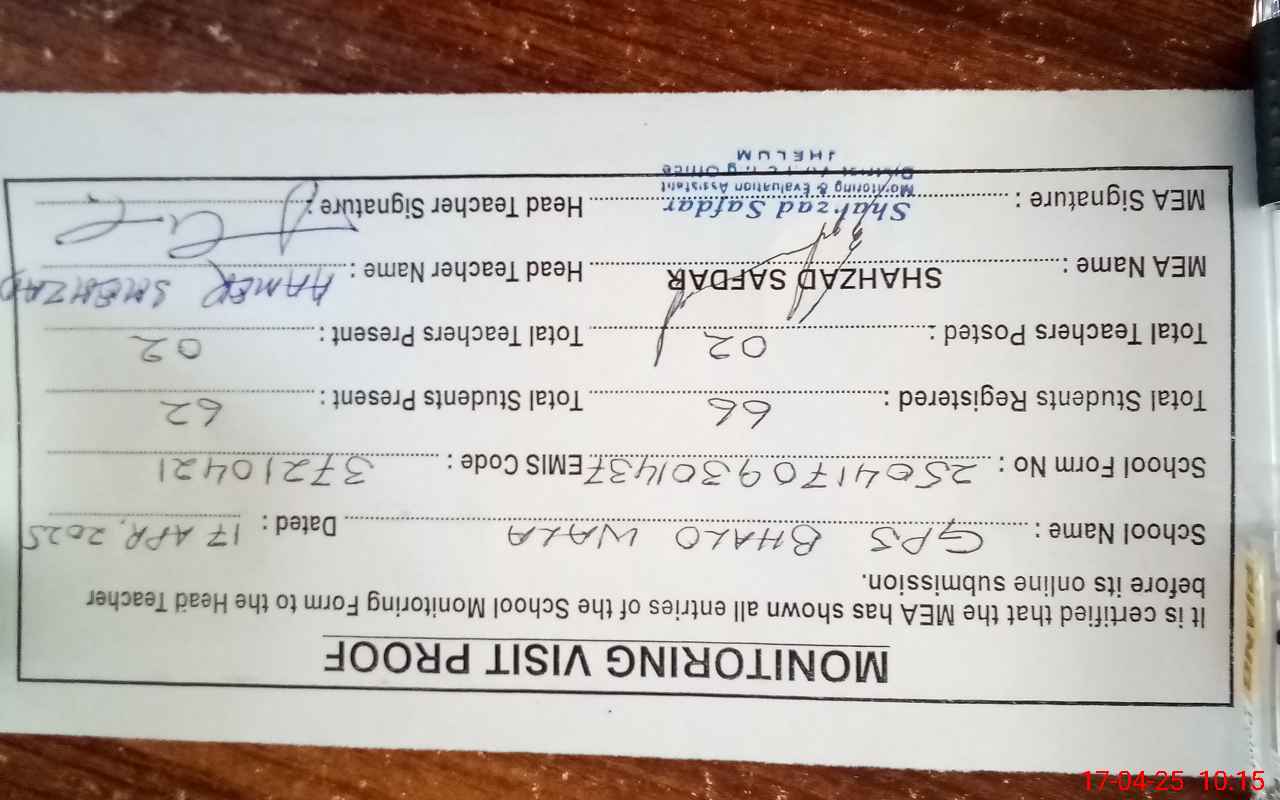 MONITORING VISIT PROOF
It is certified that the MEA has shown all entries of the School Monitoring Form to the Head Teacher
before its online submission.
School Name : GPS BHALO WALA Dated : 17 APR, 2025
School Form No : 25041709301437 EMIS Code : 37210421
Total Students Registered : 66 Total Students Present : 62
Total Teachers Posted : 02 Total Teachers Present : 02
MEA Name : SHAHZAD SAFDAR Head Teacher Name : AAMER SHEHZAD
MEA Signature : Shahzad Safdar Head Teacher Signature :
Monitoring & Evaluation Assistant
District Office
JHELUM
17-04-25 10:15